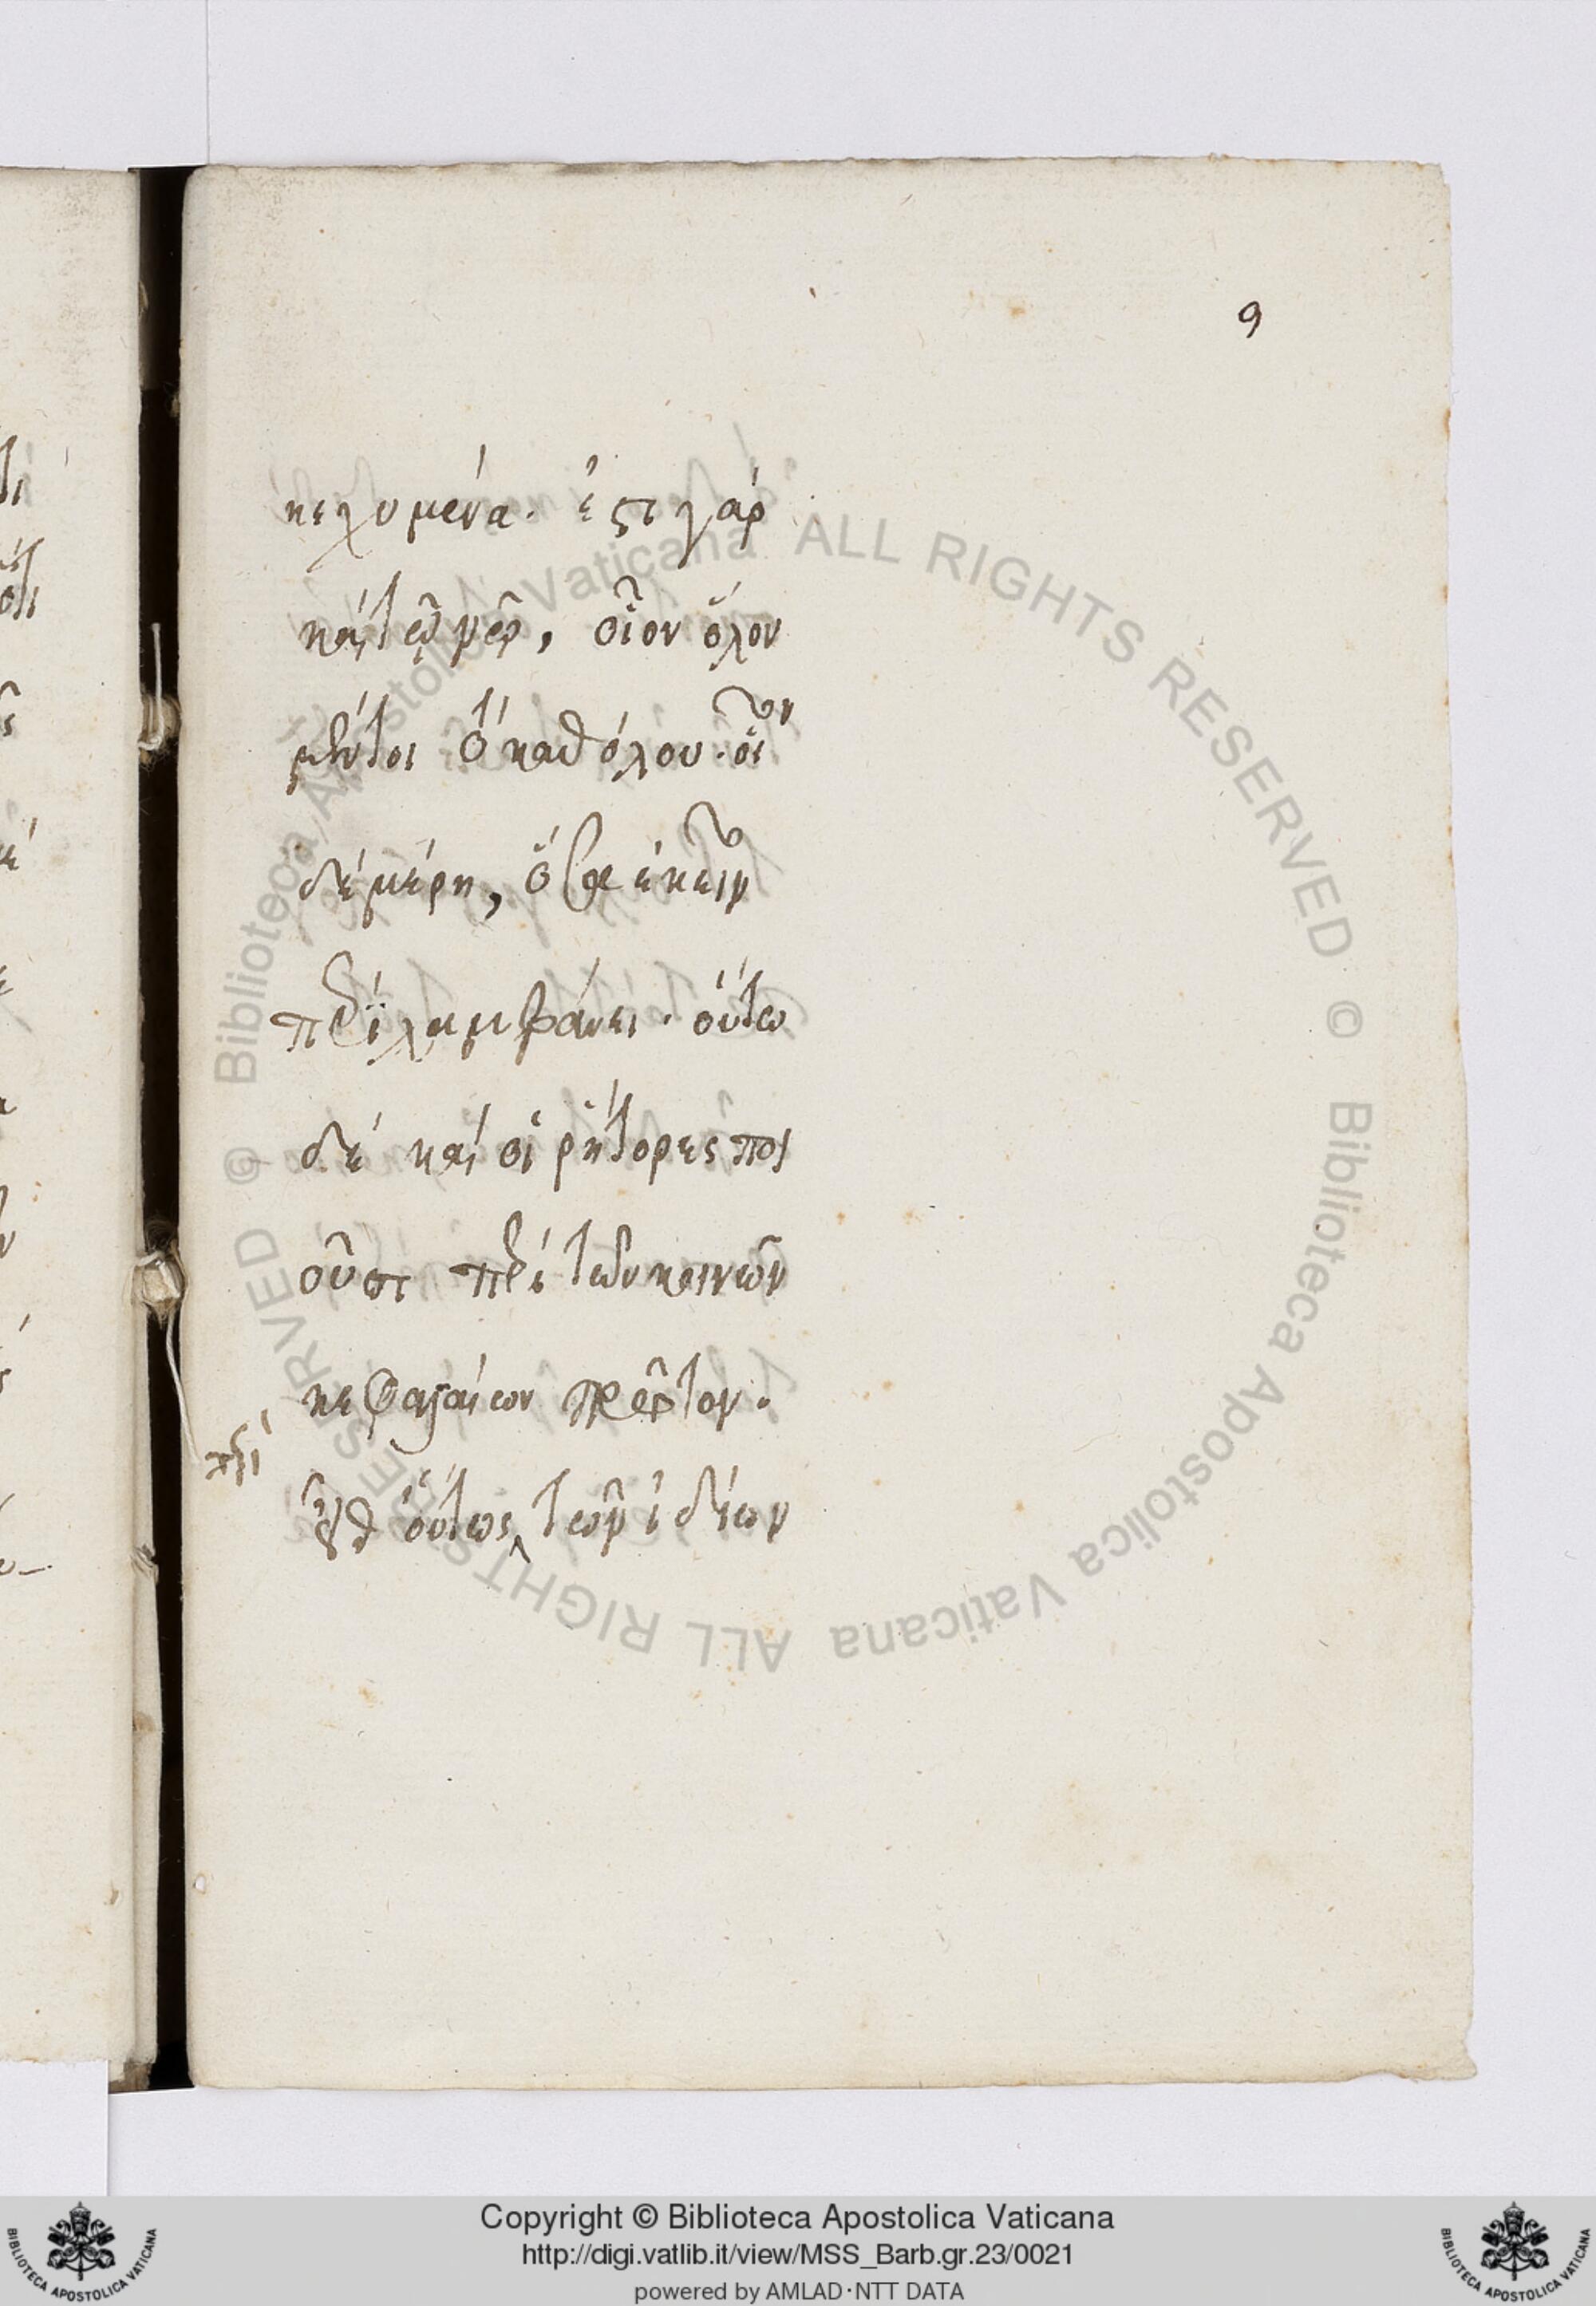 9
κεχυμένα. ἔστι γὰρ
καὶ τῷ μὲν, οἷον ὅλον
μέντοι τὸ καθόλου. οἷον
δὲ μέρη, ὅσα ἐκεῖνο
περιλαμβάνει. οὕτω
δὲ καὶ οἱ ῥήτορες ποι
οῦσι περὶ τῶν κοινῶν
κεφαλαίων πρῶτον.
εἶθ οὕτως περὶ τῶν ἰδίων
© Biblioteca Apostolica Vaticana ALL RIGHTS RESERVED © Biblioteca Apostolica Vaticana ALL RIGHTS RESERVED
Copyright © Biblioteca Apostolica Vaticana
http://digi.vatlib.it/view/MSS_Barb.gr.23/0021
powered by AMLAD·NTT DATA
BIBLIOTECA APOSTOLICA VATICANA
BIBLIOTECA APOSTOLICA VATICANA